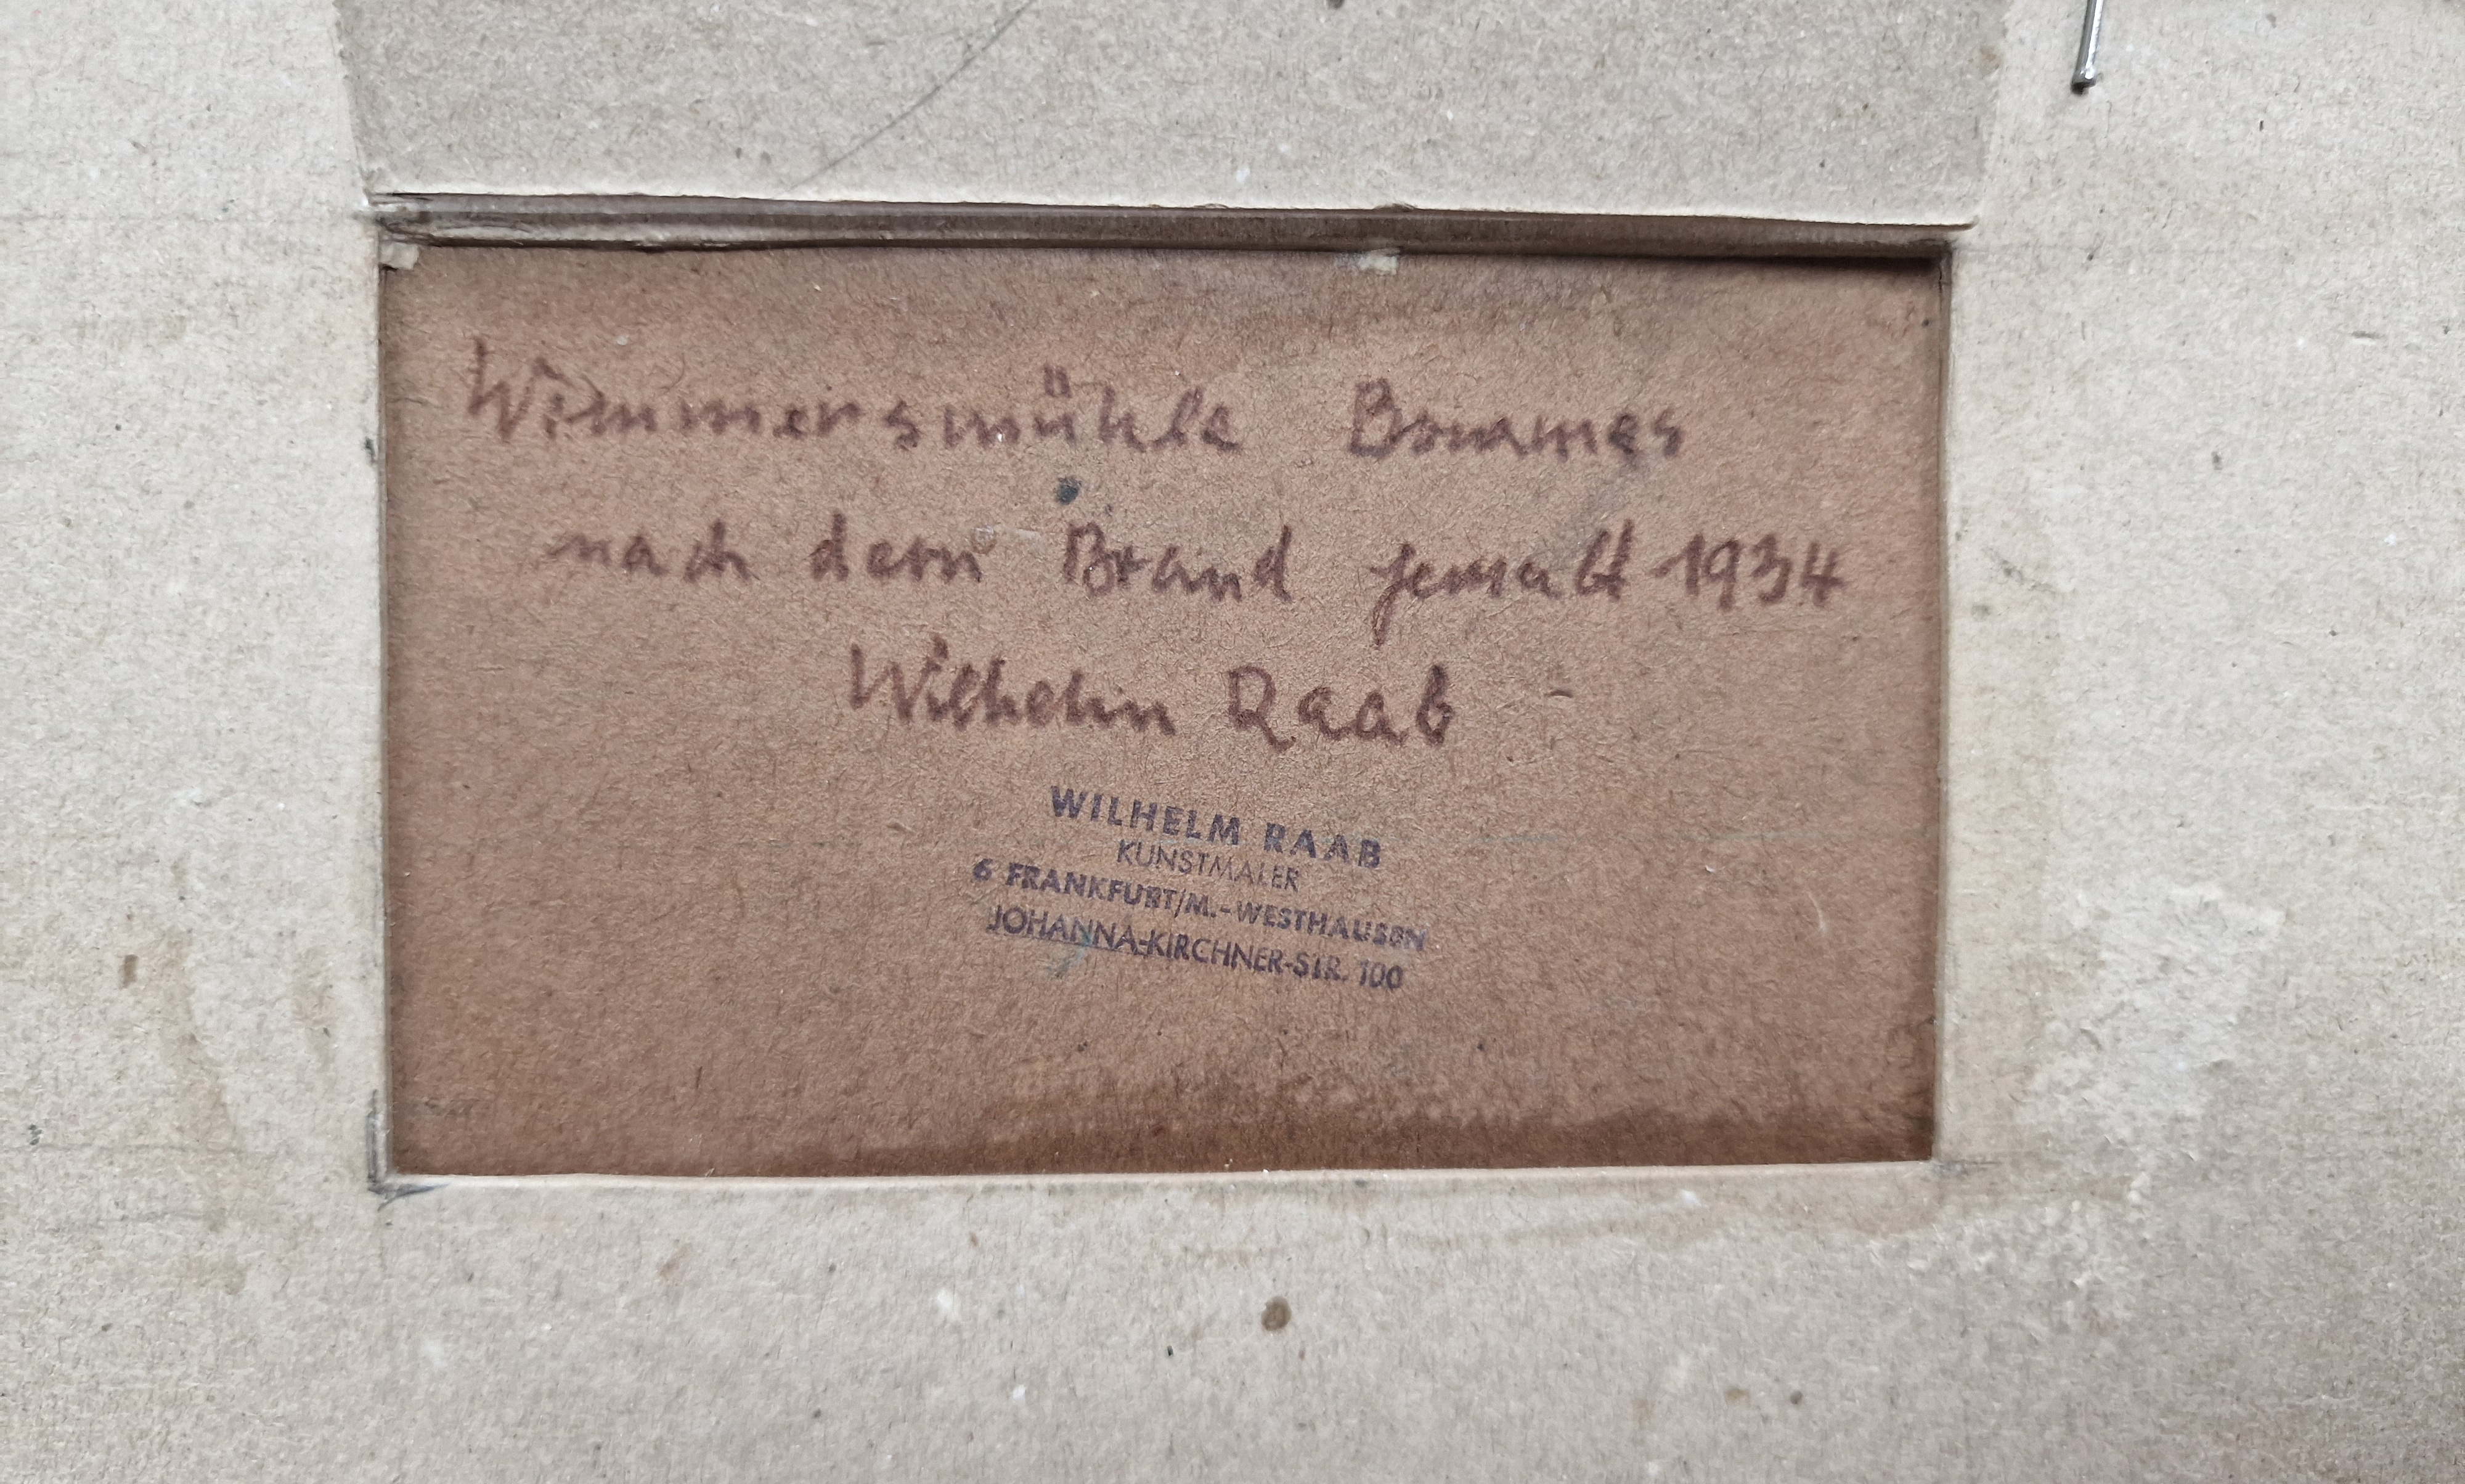 Wimmersmühle Bommes
nach dem Brand gemalt 1934
Wilhelm Raab
WILHELM RAAB
KUNSTMALER
6 FRANKFURT/M.-WESTHAUSEN
JOHANNA-KIRCHNER-STR. 100